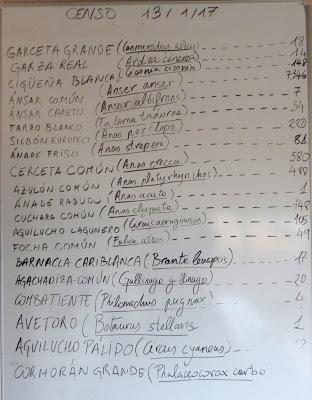 CENSO 13/1/17
GARCETA GRANDE (Casmerodius albus) 18
GARZA REAL (Ardea cinerea) 14
CIGÜEÑA BLANCA (Ciconia ciconia) 148
ÁNSAR COMÚN (Anser anser) 7346
ÁNSAR CARETO (Anser albifrons) 7
TARRO BLANCO (Tadorna tadorna) 34
SILBÓN EUROPEO (Anas penelope) 280
ÁNADE FRISO (Anas strepera) 81
CERCETA COMÚN (Anas crecca) 580
AZULÓN COMÚN (Anas platyrhynchos) 488
ÁNADE RABUDO (Anas acuta) 1
CUCHARA COMÚN (Anas clypeata) 148
AGUILUCHO LAGUNERO (Circus aeruginosus) 105
FOCHA COMÚN (Fulica atra) 49
BARNACLA CARIBLANCA (Branta leucopsis) 17
AGACHADIZA COMÚN (Gallinago gallinago) 20
COMBATIENTE (Philomachus pugnax) 4
AVETORO (Botaurus stellaris 1
AGUILUCHO PÁLIDO (Circus cyaneus)
CORMORÁN GRANDE (Phalacrocorax carbo